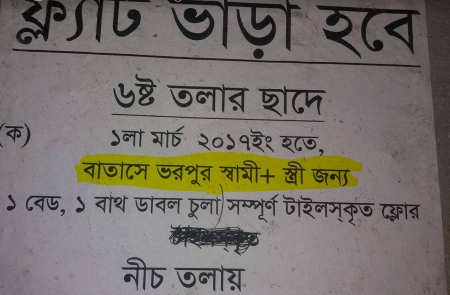 ফ্ল্যাট ভাড়া হবে
৬ষ্ট তলার ছাদে
(ক) ১লা মার্চ ২০১৭ইং হতে,
বাতাসে ভরপুর স্বামী+ স্ত্রী জন্য
১ বেড, ১ বাথ ডাবল চুলা সম্পূর্ণ টাইলস্কৃত ফ্লোর
নীচ তলায়